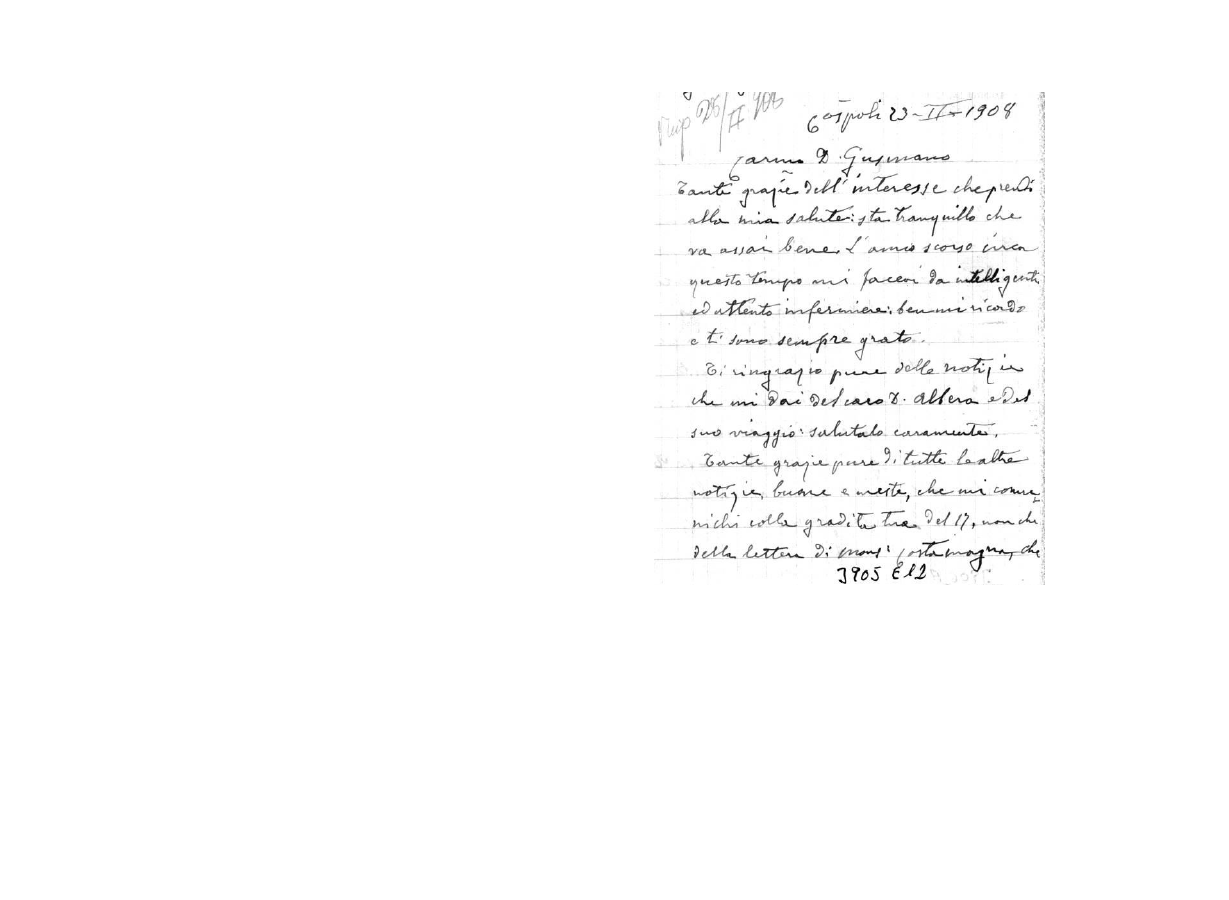 Risp 28/II 908
Cospoli 23-II-1908
Carmo D. Gusmano
Tante grazie dell'interesse che prendi
alla mia salute: sta tranquillo che
va assai bene. L'anno scorso circa
questo tempo mi facevi da intelligente
ed attento infermiere: ben mi ricordo
e ti sono sempre grato.
Ti ringrazio pure delle notizie
che mi dai del caro D. Albera e del
suo viaggio: salutalo caramente.
Tante grazie pure di tutte le altre
notizie, buone e meste, che mi comu-
nichi colla gradita tua del 17, non che
della lettera di Mons: Costamagna, che
3905 E12